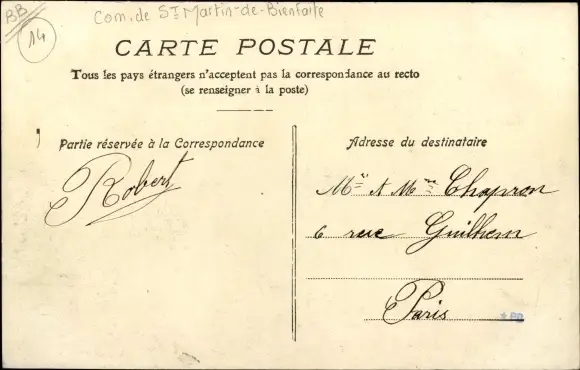 BB
14
Com. de St Martin-de-Bienfaite
CARTE POSTALE
Tous les pays étrangers n'acceptent pas la correspondance au recto
(se renseigner à la poste)
Partie réservée à la Correspondance
Adresse du destinataire
Robert
Mr & Mme Chapron
6 rue Guilhem
Paris
PD